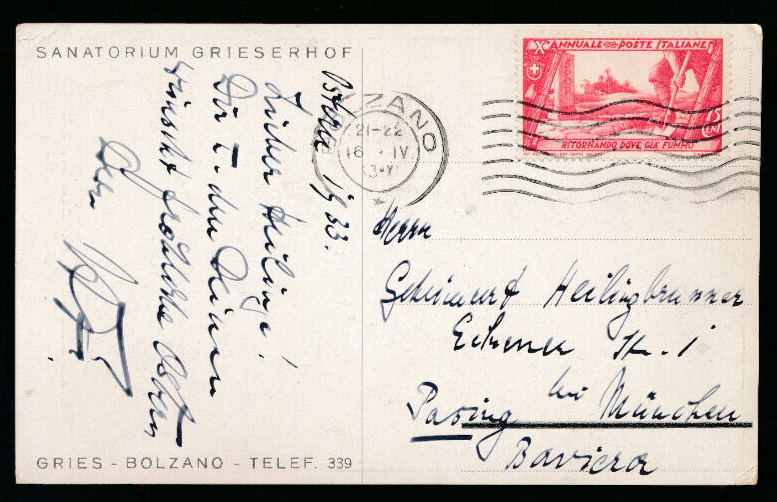 SANATORIUM GRIESERHOF
Ostern 1933.
Lieber Heilinge!
Dir u. den Deinen
wünscht fröhliche Ostern
Dein
GRIES - BOLZANO - TELEF. 339
BOLZANO
21-22
16 · IV
X ANNUALE POSTE ITALIANE
RITORNANDO DOVE GIA' FUMMO
15
CENT
Herrn
Geheimrat Heilingbrunner
Str. 1
Pasing bei München
Baviera